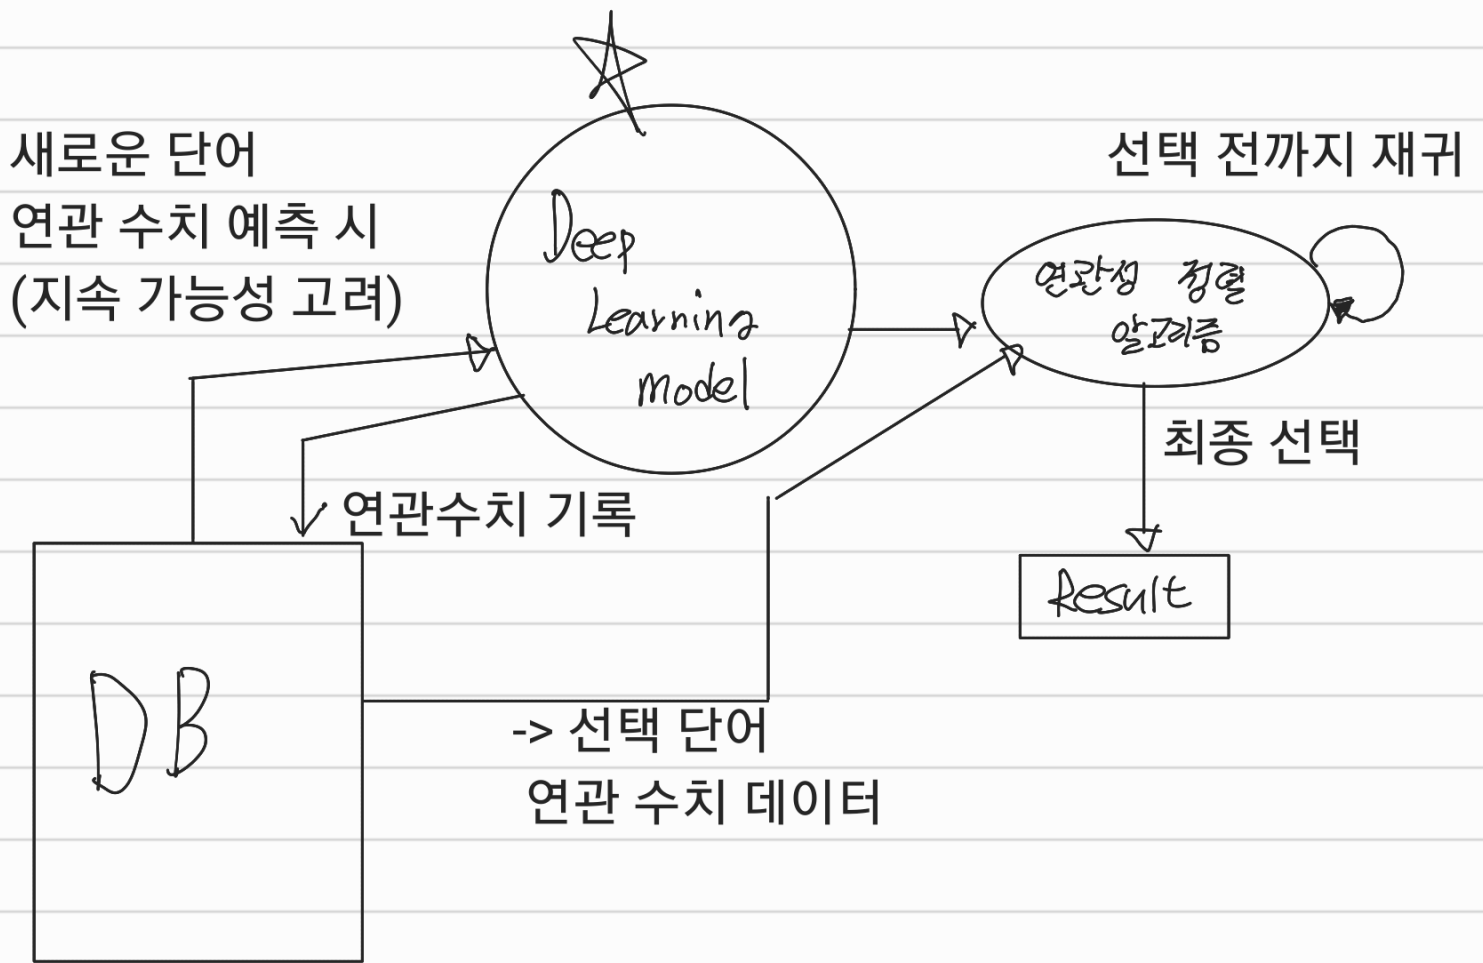 새로운 단어
연관 수치 예측 시
(지속 가능성 고려)
Deep
Learning
Model
선택 전까지 재귀
연관성 정렬
알고리즘
최종 선택
연관수치 기록
Result
DB
-> 선택 단어
연관 수치 데이터